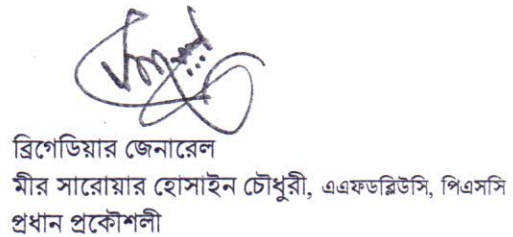 ব্রিগেডিয়ার জেনারেল
মীর সারোয়ার হোসাইন চৌধুরী, এএফডব্লিউসি, পিএসসি
প্রধান প্রকৌশলী